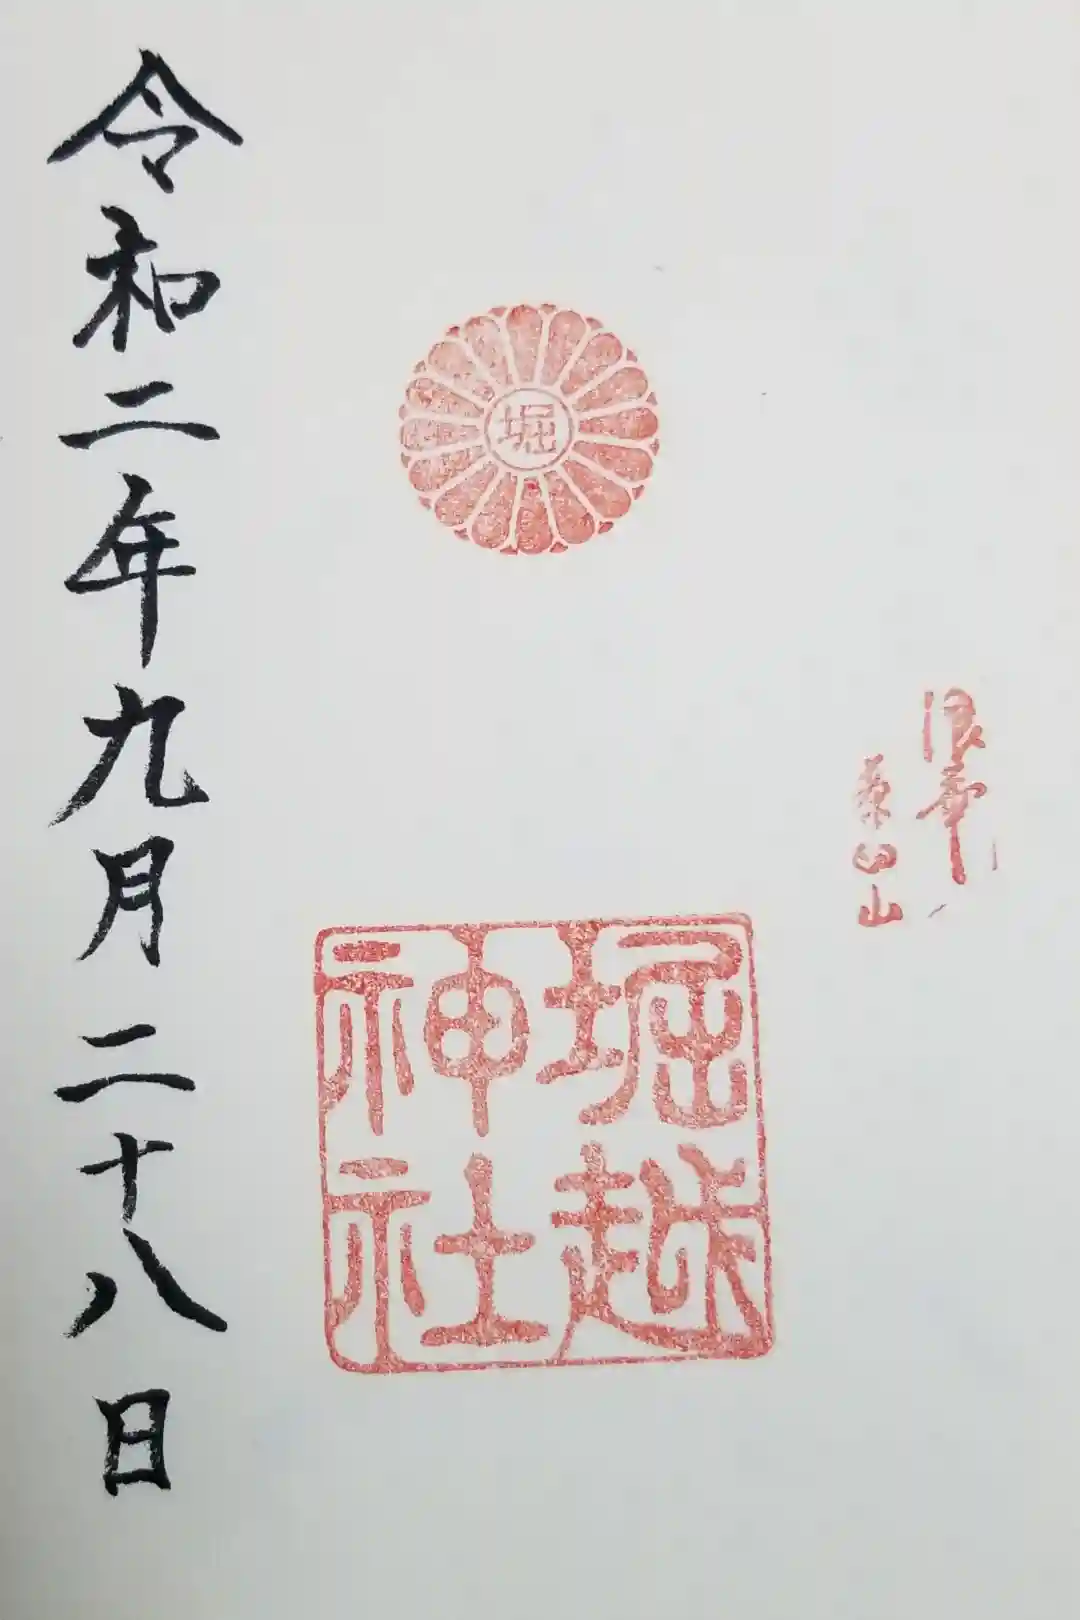 浪華
茶臼山
堀
堀越
神社
令和二年九月二十八日